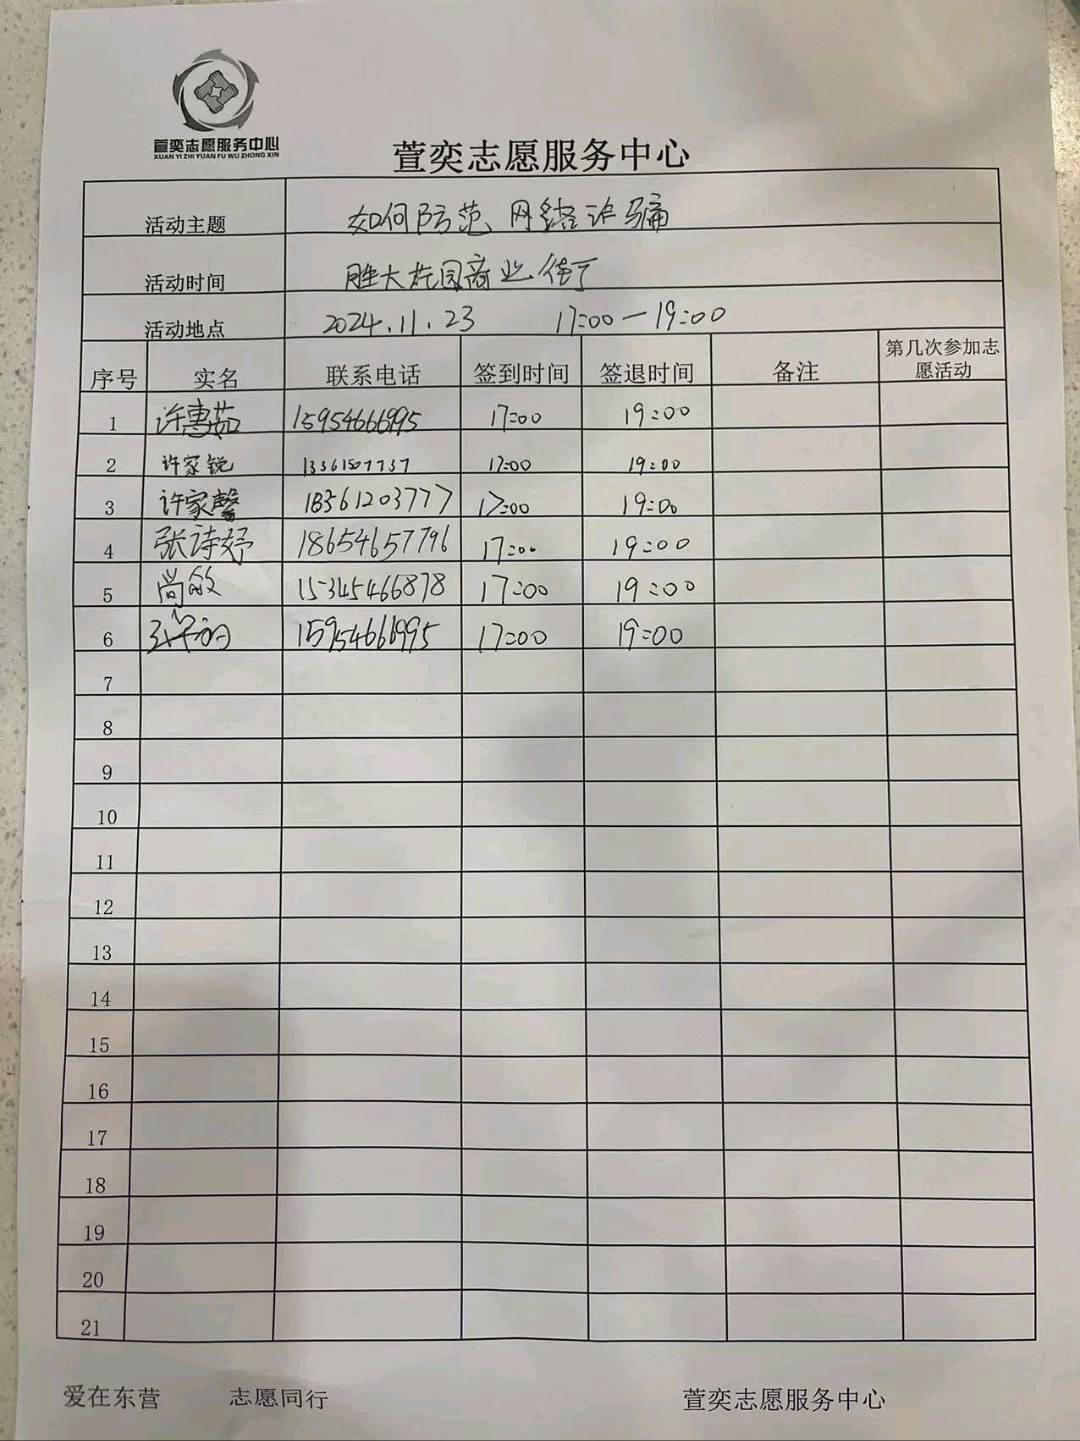 萱奕志愿服务中心
XUAN YI ZHI YUAN FU WU ZHONG XIN
萱奕志愿服务中心
活动主题 如何防范网络诈骗
活动时间 胜大花园商业街
活动地点 2024.11.23 17:00—19:00
序号 实名 联系电话 签到时间 签退时间 备注 第几次参加志愿活动
1 许惠茹 15954666995 17:00 19:00
2 许家锐 13361507737 17:00 19:00
3 许家馨 18561203777 17:00 19:00
4 张诗妤 18654657796 17:00 19:00
5 尚敏 15345466878 17:00 19:00
6 15954661995 17:00 19:00
7
8
9
10
11
12
13
14
15
16
17
18
19
20
21
爱在东营 志愿同行 萱奕志愿服务中心